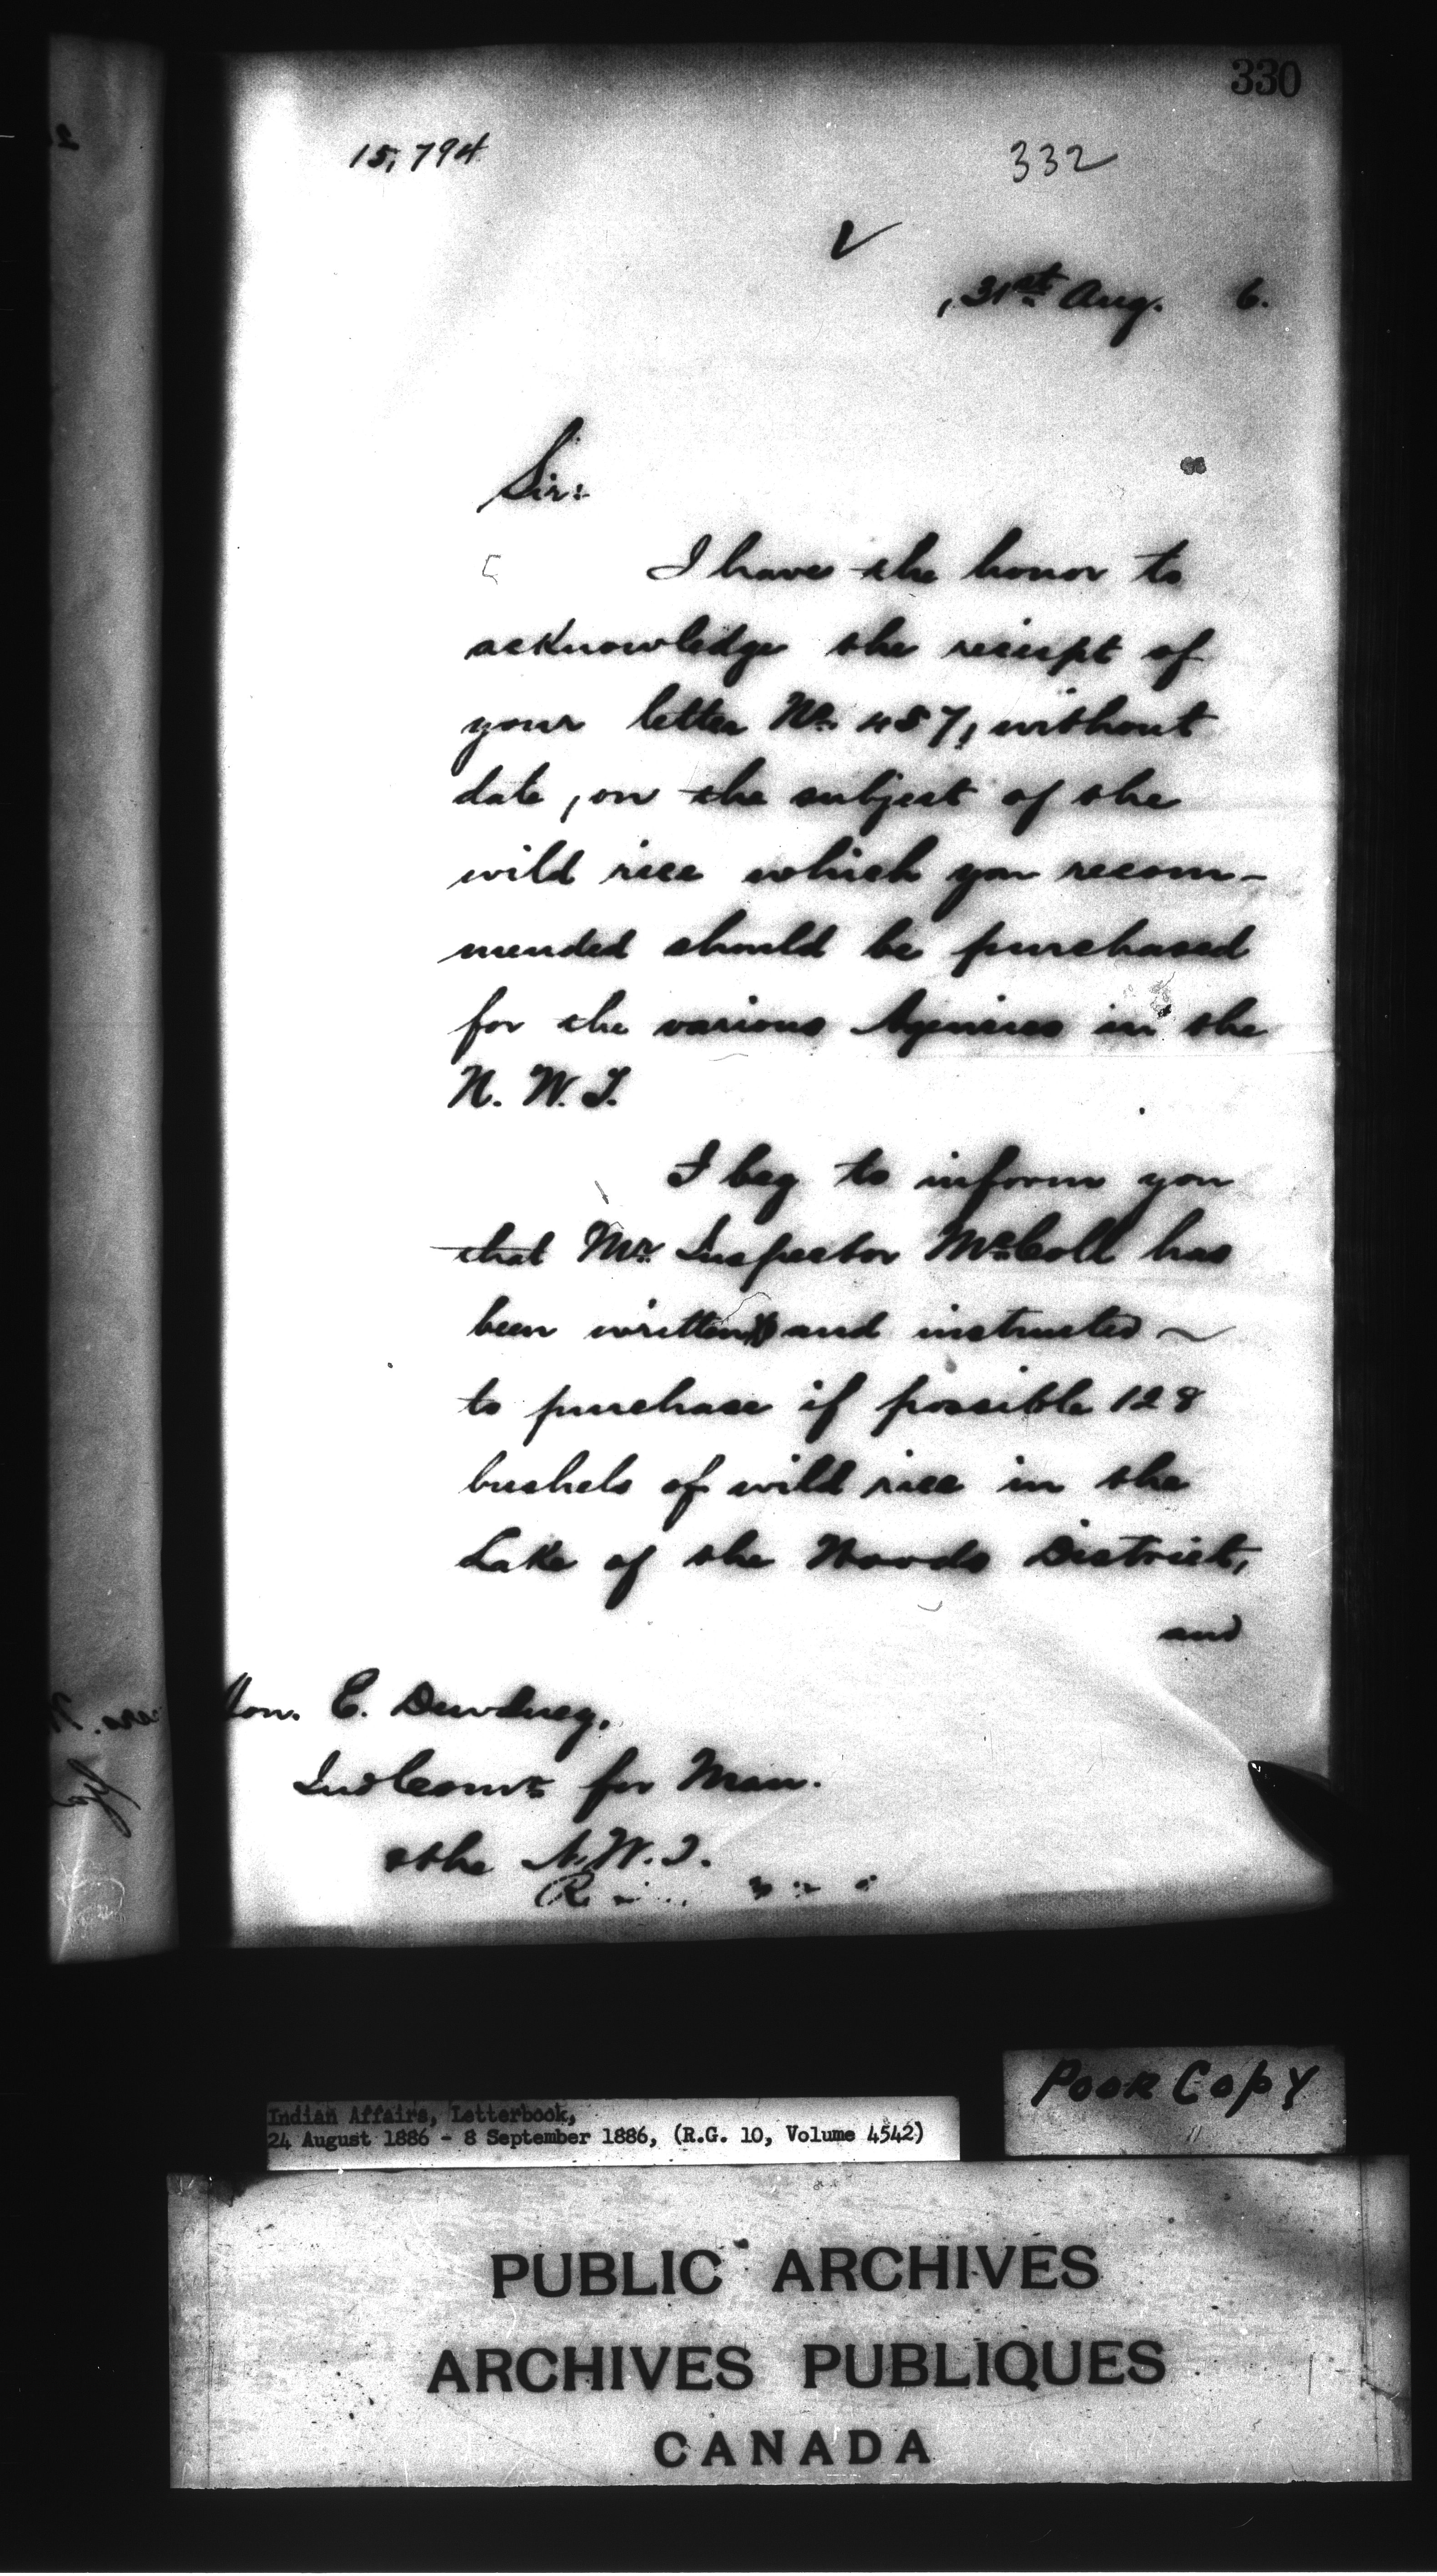 330
15,794
332
31st Aug. 6.
Sir:
I have the honor to
acknowledge the receipt of
your letter No. 457, without
date, on the subject of the
wild rice which you recom-
mended should be purchased
for the various Agencies in the
N. W. T.
I beg to inform you
that Mr. Inspector McColl has
been written and instructed
to purchase if possible 128
bushels of wild rice in the
Lake of the Woods District,
and
Hon. E. Dewdney,
Ind Comr. for Man.
&the N.W.T.
Poor Copy
Indian Affairs, Letterbook,
24 August 1886 - 8 September 1886, (R.G. 10, Volume 4542)
PUBLIC ARCHIVES
ARCHIVES PUBLIQUES
CANADA